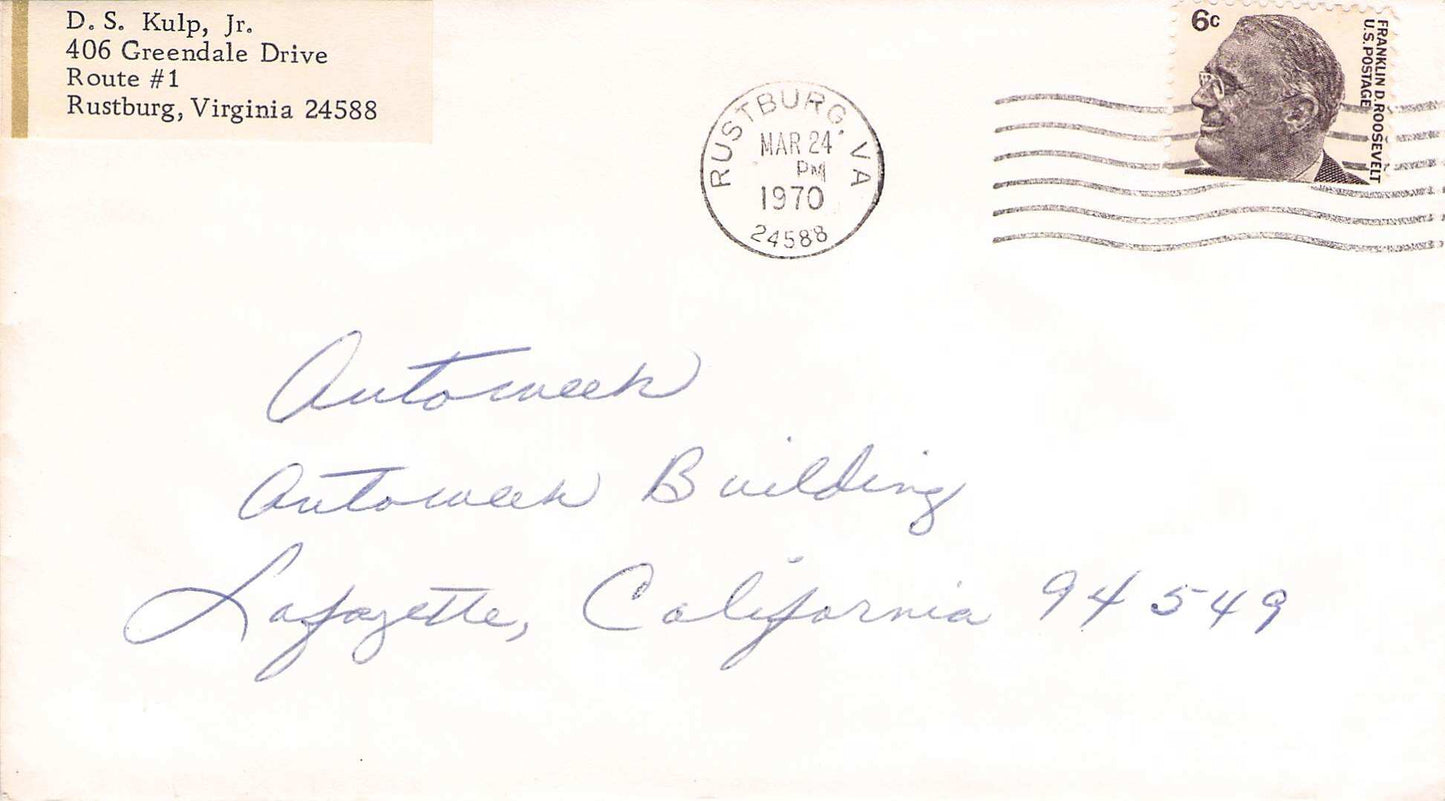 D. S. Kulp, Jr.
406 Greendale Drive
Route #1
Rustburg, Virginia 24588
RUSTBURG, VA
MAR 24
PM
1970
24588
6c
FRANKLIN D. ROOSEVELT
U.S. POSTAGE
Autoweek
Autoweek Building
Lafayette, California 94549